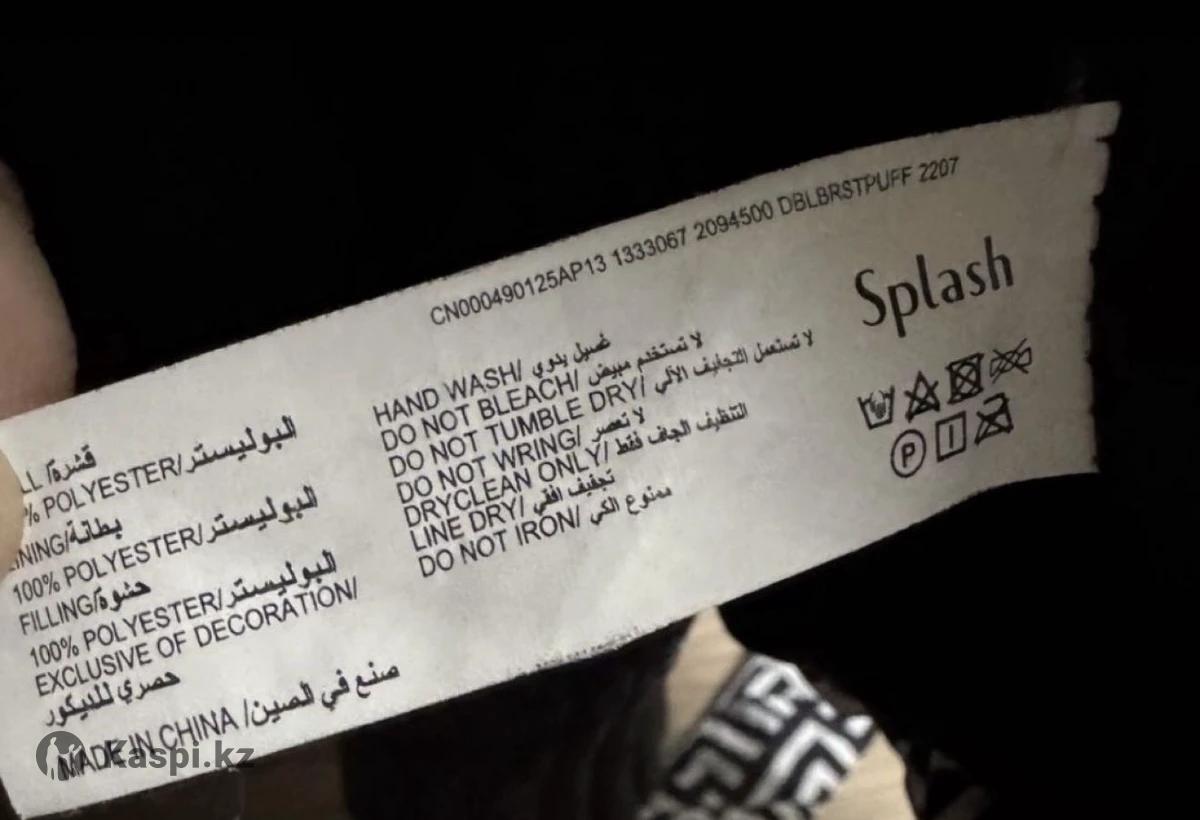 CN000490125AP13 1333067 2094500 DBLBRSTPUFF 2207
Splash
HAND WASH/ غسيل يدوي
DO NOT BLEACH/ لا تستخدم مبيض
DO NOT TUMBLE DRY/ لا تستعمل التجفيف الآلي
DO NOT WRING/ لا تعصر
DRYCLEAN ONLY/ التنظيف الجاف فقط
LINE DRY/ تجفيف افقي
DO NOT IRON/ ممنوع الكي
P
LL/قشرة
% POLYESTER/البوليستر
NING/بطانة
100% POLYESTER/البوليستر
FILLING/حشوة
100% POLYESTER/البوليستر
EXCLUSIVE OF DECORATION/
حصري للديكور
MADE IN CHINA /صنع في الصين
Kaspi.kz